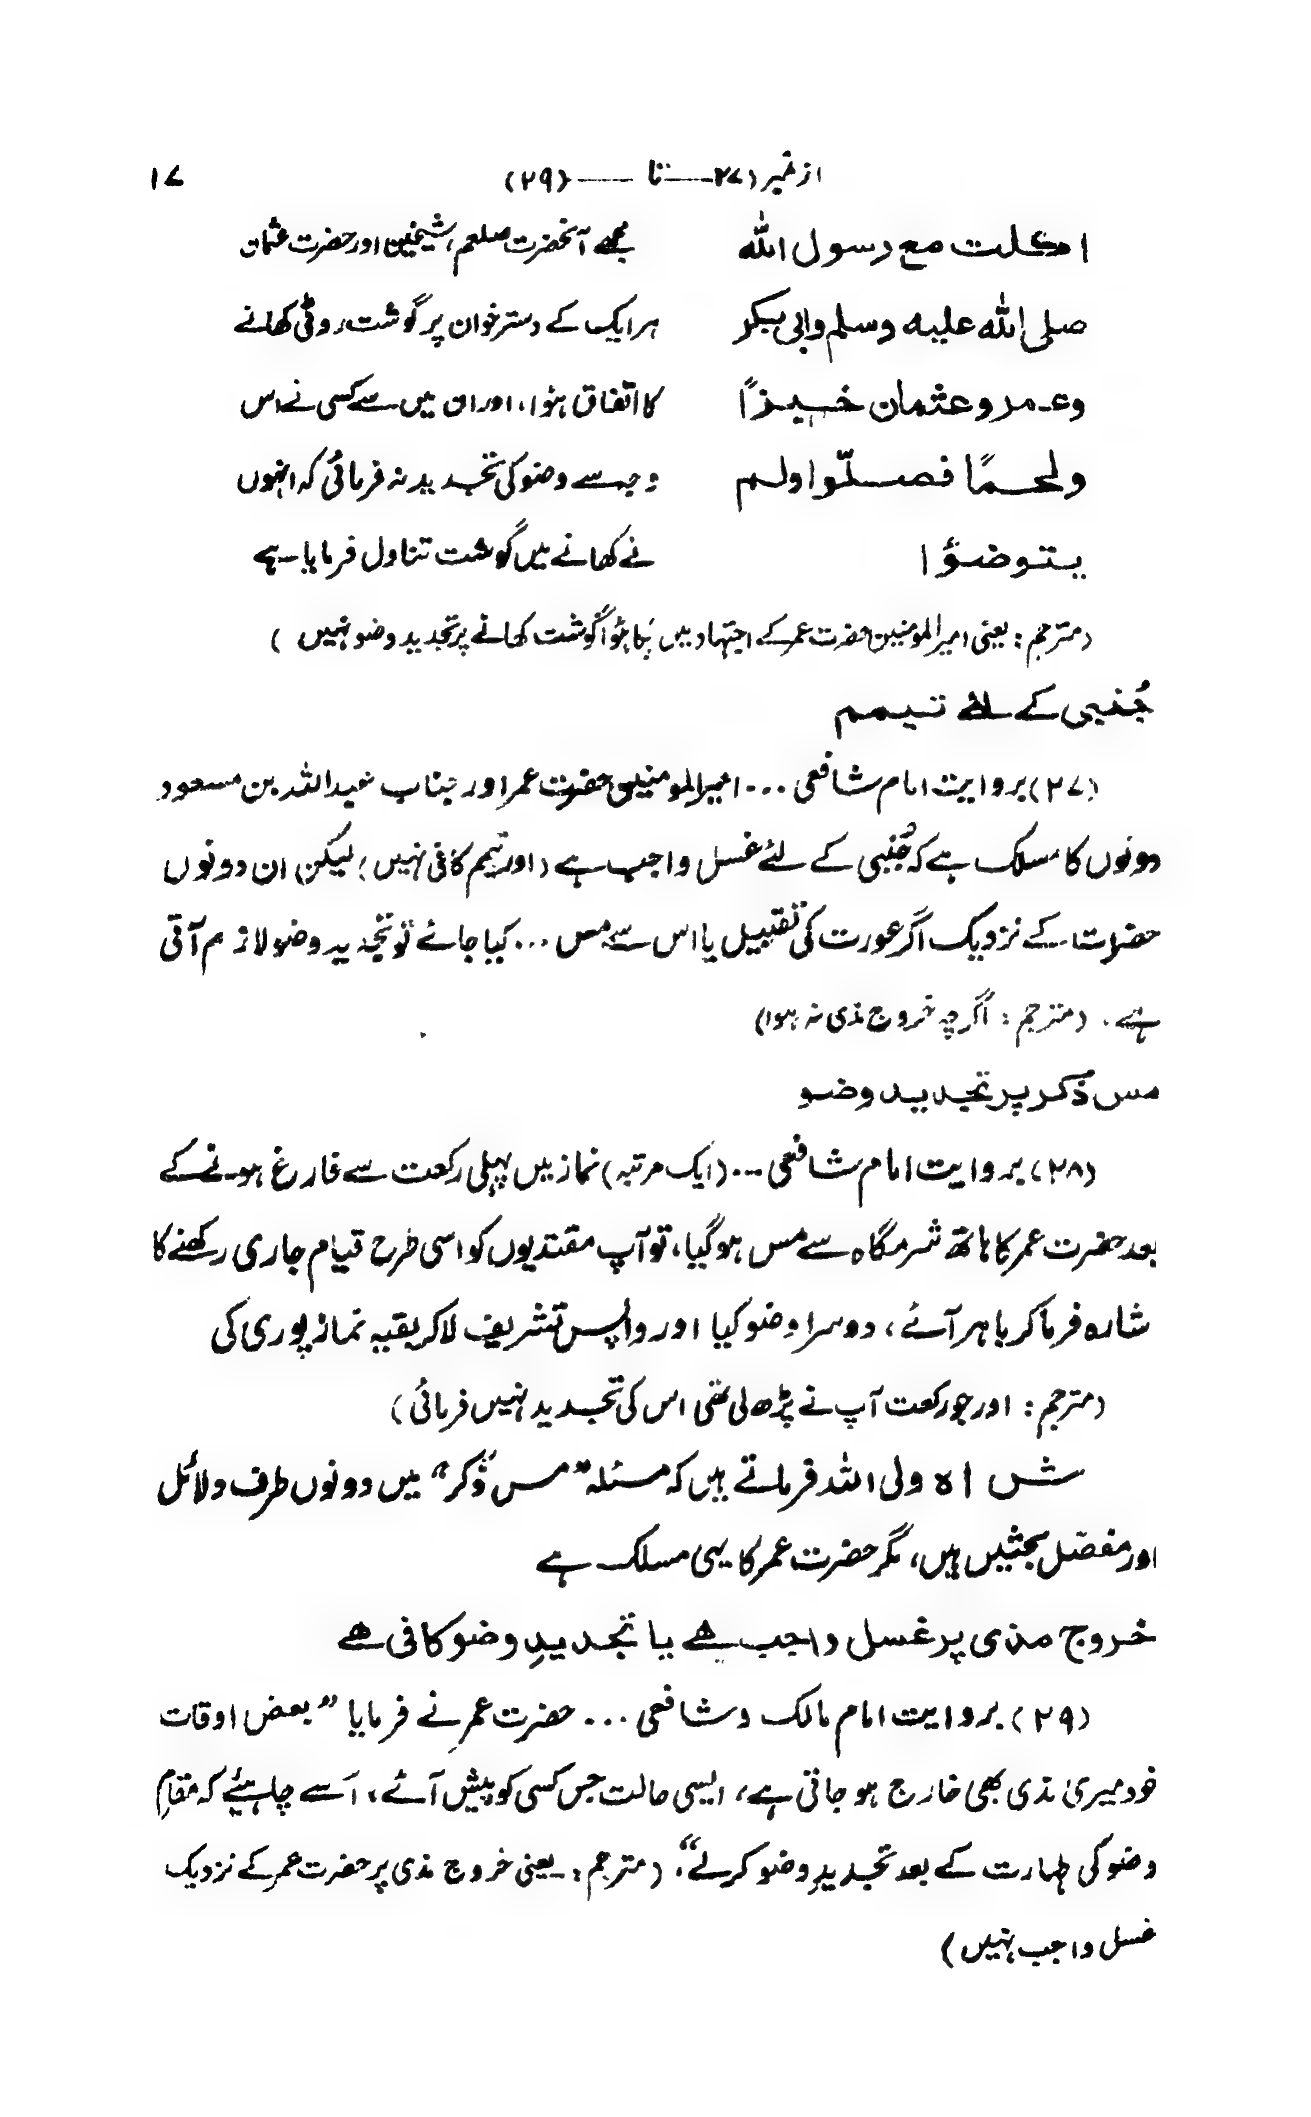 از نمبر (۲۷ ـــ تا ـــ (۲۹) ۱۷
اکلت مع رسول الله مجھے آنحضرت صلعم، شیخین اور حضرت عثمان
صلی الله علیه وسلم وابی بکر ہر ایک کے دسترخوان پر گوشت روٹی کھانے
وعمر و عثمان خبیزاً کا اتفاق ہؤا، اور ان میں سے کسی نے اس
ولحماً فصلّوا ولم وجہ سے وضو کی تجدید نہ فرمائی کہ انہوں
یتوضؤا نے کھانے میں گوشت تناول فرمایا ہے
(مترجم: یعنی امیر المومنین حضرت عمر کے اجتہاد میں پکا ہؤا گوشت کھانے پر تجدید وضو نہیں)
جُنبی کے لئے تیمم
(۲۷) بروایت امام شافعی ... امیر المومنین حضرت عمر اور جناب عبداللہ بن مسعود
دونوں کا مسلک ہے کہ جُنبی کے لئے غسل واجب ہے (اور تیمم کافی نہیں) لیکن ان دونوں
حضرات کے نزدیک اگر عورت کی تقبیل یا اس سے مس ... کیا جائے تو تجدید وضو لازم آتی
ہے. (مترجم: اگرچہ خروج مذی نہ ہوا)
مس ذکر پر تجدید وضو
(۲۸) بروایت امام شافعی ... (ایک مرتبہ) نماز میں پہلی رکعت سے فارغ ہونے کے
بعد حضرت عمر کا ہاتھ شرمگاہ سے مس ہوگیا، تو آپ مقتدیوں کو اسی طرح قیام جاری رکھنے کا
شارہ فرما کر باہر آئے، دوسرا وضو کیا اور واپس تشریف لا کر بقیہ نماز پوری کی
(مترجم: اور جو رکعت آپ نے پڑھ لی تھی اس کی تجدید نہیں فرمائی)
شاہ ولی اللہ فرماتے ہیں کہ مسئلہ "مس ذکر" میں دونوں طرف دلائل
اور مفصّل بحثیں ہیں، مگر حضرت عمر کا یہی مسلک ہے
خروج مذی پر غسل واجب ہے یا تجدیدِ وضو کافی ہے
(۲۹) بروایت امام مالک و شافعی ... حضرت عمر نے فرمایا "بعض اوقات
خود میری مذی بھی خارج ہو جاتی ہے، ایسی حالت جس کسی کو پیش آئے، اُسے چاہیئے کہ مقامِ
وضو کی طہارت کے بعد تجدیدِ وضو کرلے". (مترجم: یعنی خروج مذی پر حضرت عمر کے نزدیک
غسل واجب نہیں)